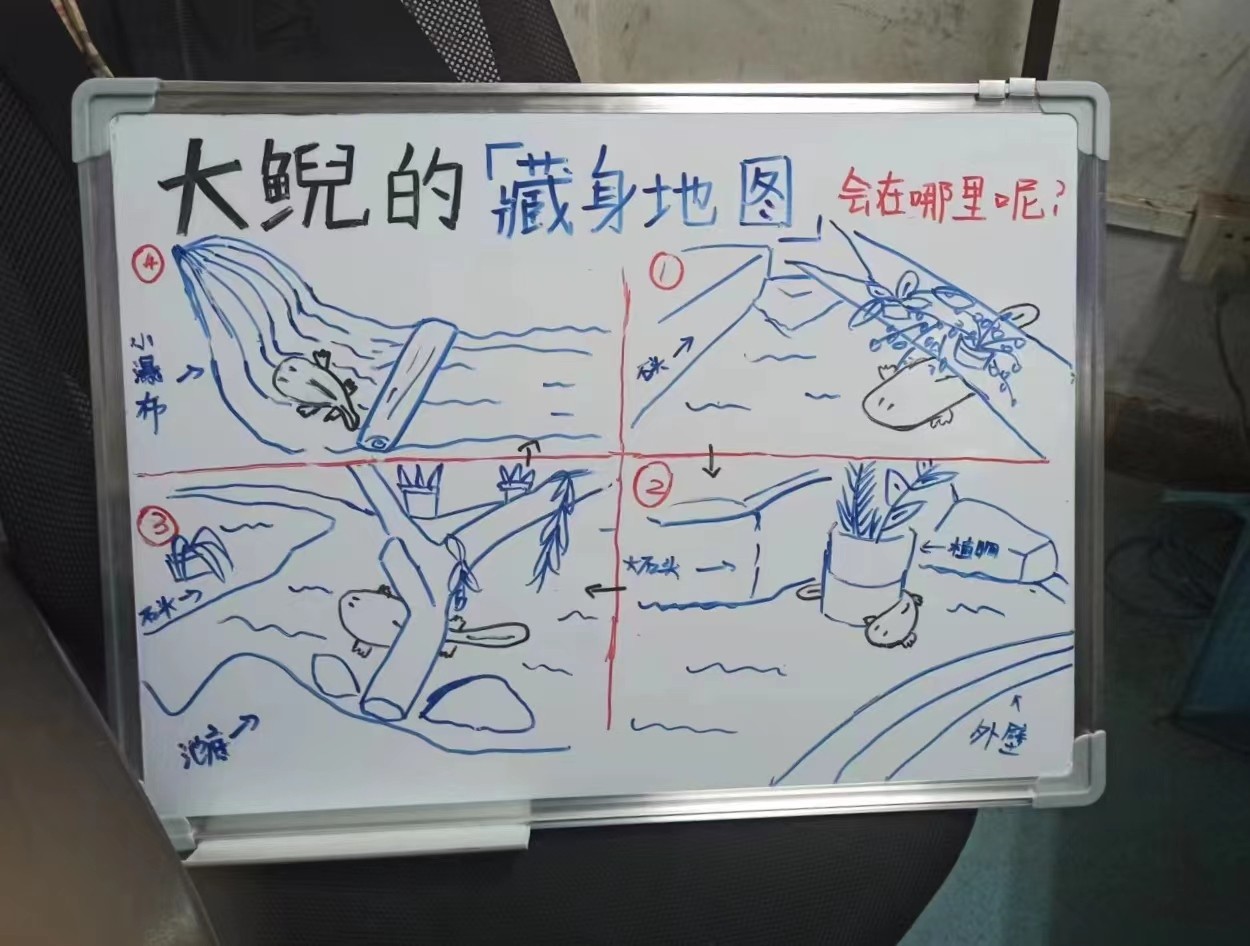 大鲵的「藏身地图」
会在哪里呢?
④
小瀑布
①
石头
③
石头
池底
②
大石头
植物
外壁